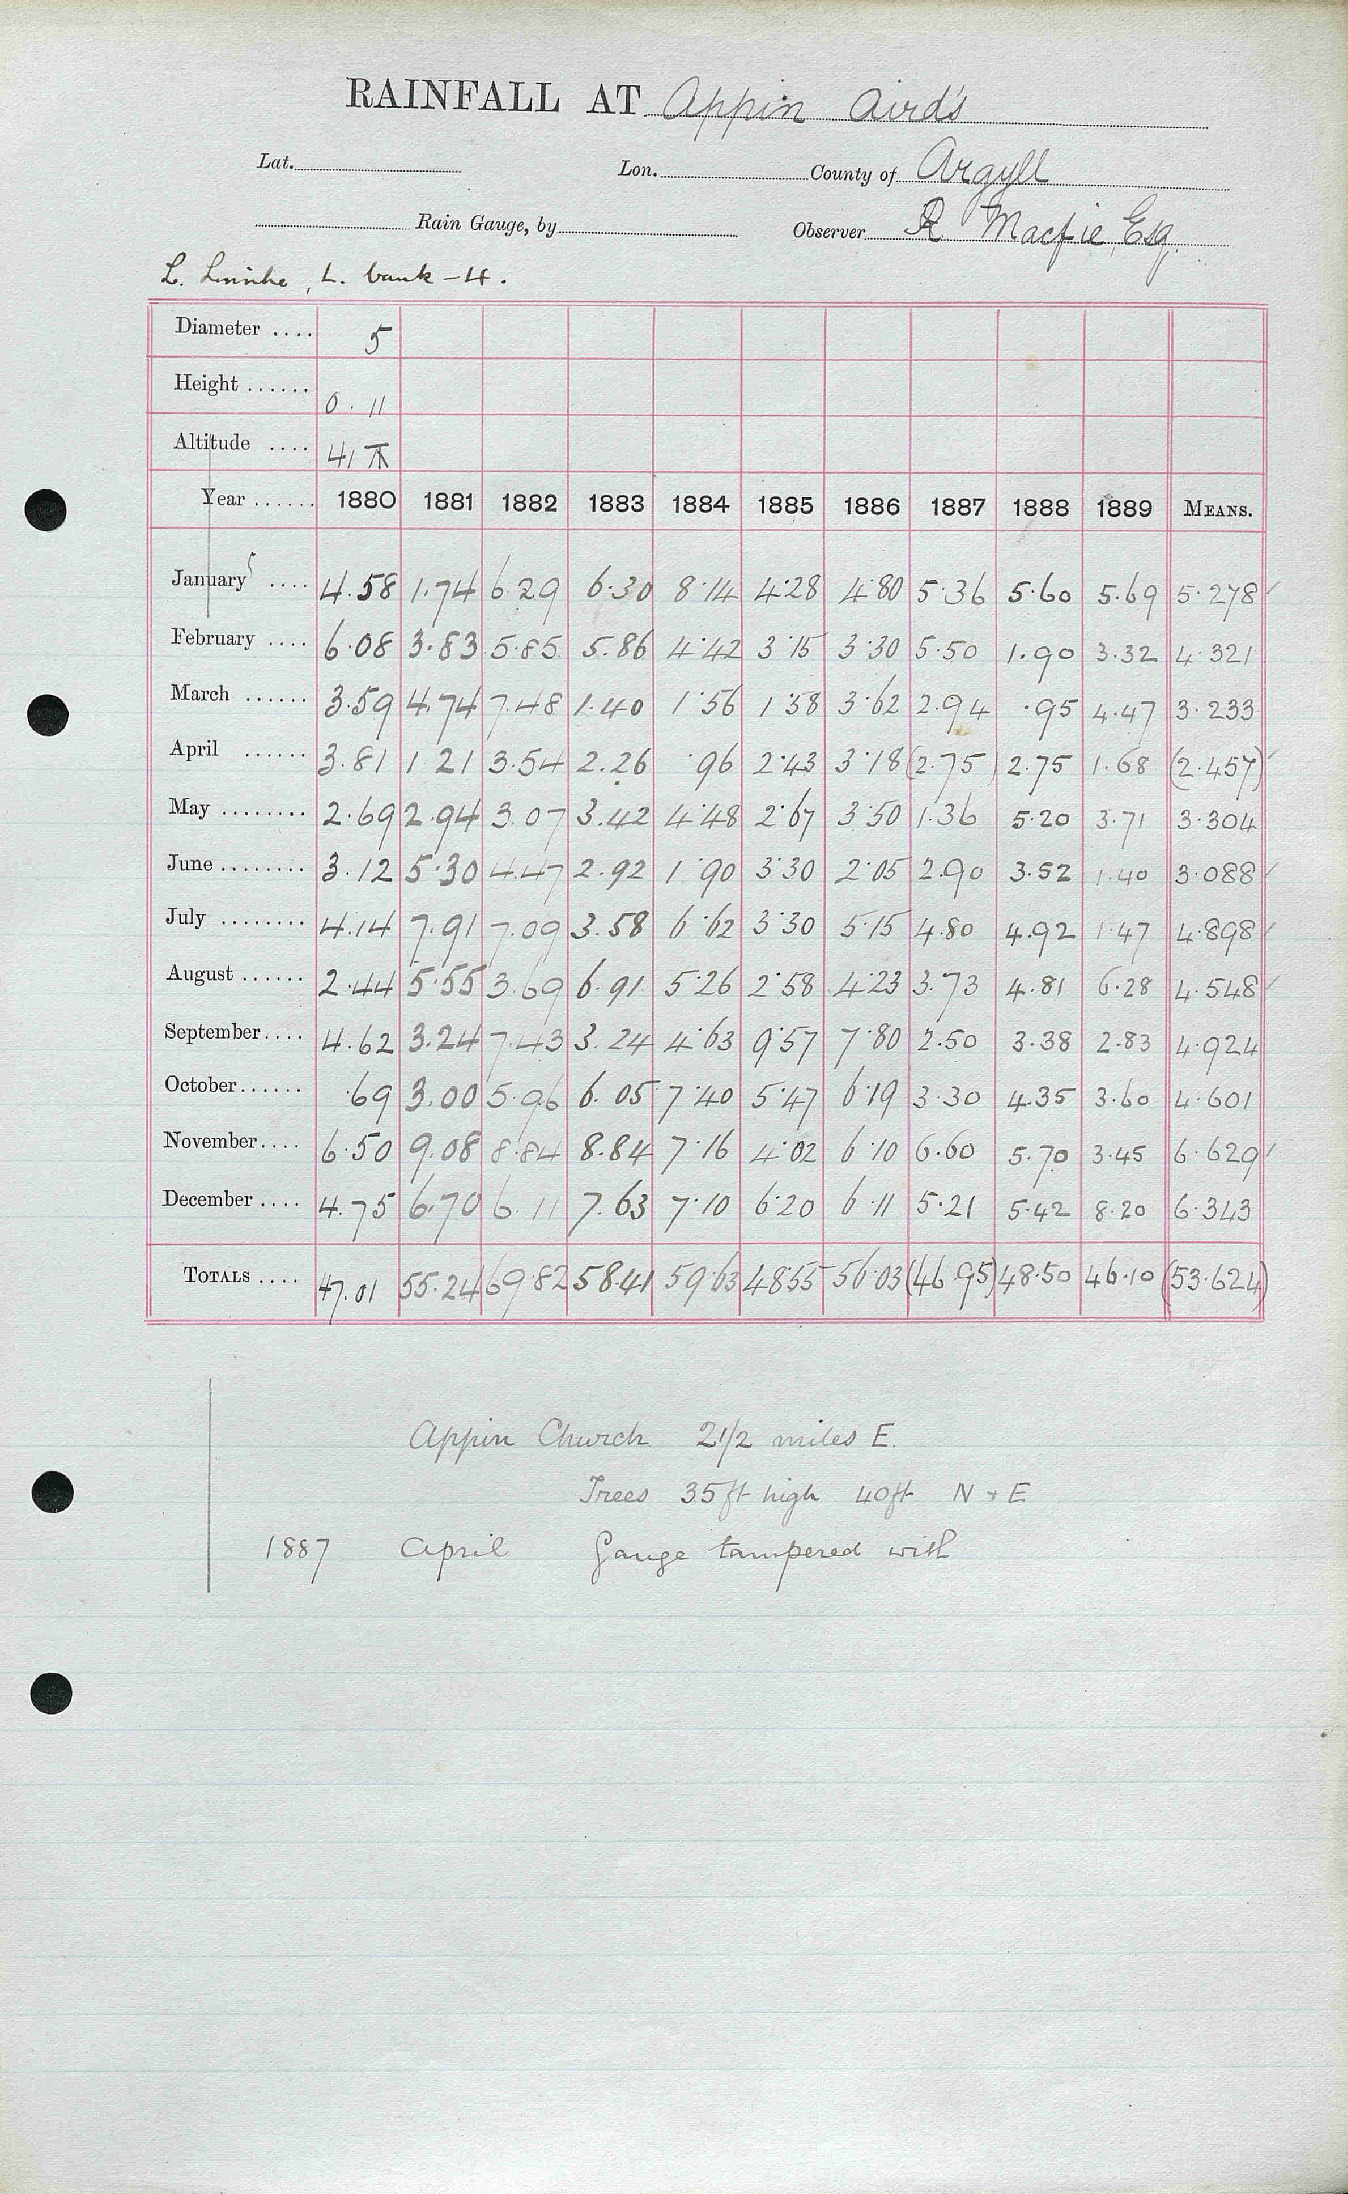 RAINFALL AT Appin Aird's
Lat. Lon. County of Argyll
Rain Gauge, by Observer R Macfie Esq.
L. Linnhe, L. bank - 4.
Diameter .... 5
Height ...... 0.11
Altitude .... 41
Year ...... 1880 1881 1882 1883 1884 1885 1886 1887 1888 1889 MEANS.
January .... 4.58 1.74 6.29 6.30 8.14 4.28 4.80 5.36 5.60 5.69 5.278
February .... 6.08 3.83 5.85 5.86 4.42 3.15 3.30 5.50 1.90 3.32 4.321
March ...... 3.59 4.74 7.48 1.40 1.56 1.58 3.62 2.94 .95 4.47 3.233
April ...... 3.81 1.21 3.54 2.26 .96 2.43 3.18 (2.75) 2.75 1.68 (2.457)
May ........ 2.69 2.94 3.07 3.42 4.48 2.67 3.50 1.36 5.20 3.71 3.304
June ........ 3.12 5.30 4.47 2.92 1.90 3.30 2.05 2.90 3.52 1.40 3.088
July ........ 4.14 7.91 7.09 3.58 6.62 3.30 5.15 4.80 4.92 1.47 4.898
August ...... 2.44 5.55 3.69 6.91 5.26 2.58 4.23 3.73 4.81 6.28 4.548
September.... 4.62 3.24 7.43 3.24 4.63 9.57 7.80 2.50 3.38 2.83 4.924
October...... .69 3.00 5.96 6.05 7.40 5.47 6.19 3.30 4.35 3.60 4.601
November.... 6.50 9.08 8.84 8.84 7.16 4.02 6.10 6.60 5.70 3.45 6.629
December .... 4.75 6.70 6.11 7.63 7.10 6.20 6.11 5.21 5.42 8.20 6.343
TOTALS .... 47.01 55.24 69.82 58.41 59.63 48.55 56.03 (46.95) 48.50 46.10 (53.624)
Appin Church 2 1/2 miles E.
Trees 35 ft high 40 ft N + E
1887 April Gauge tampered with